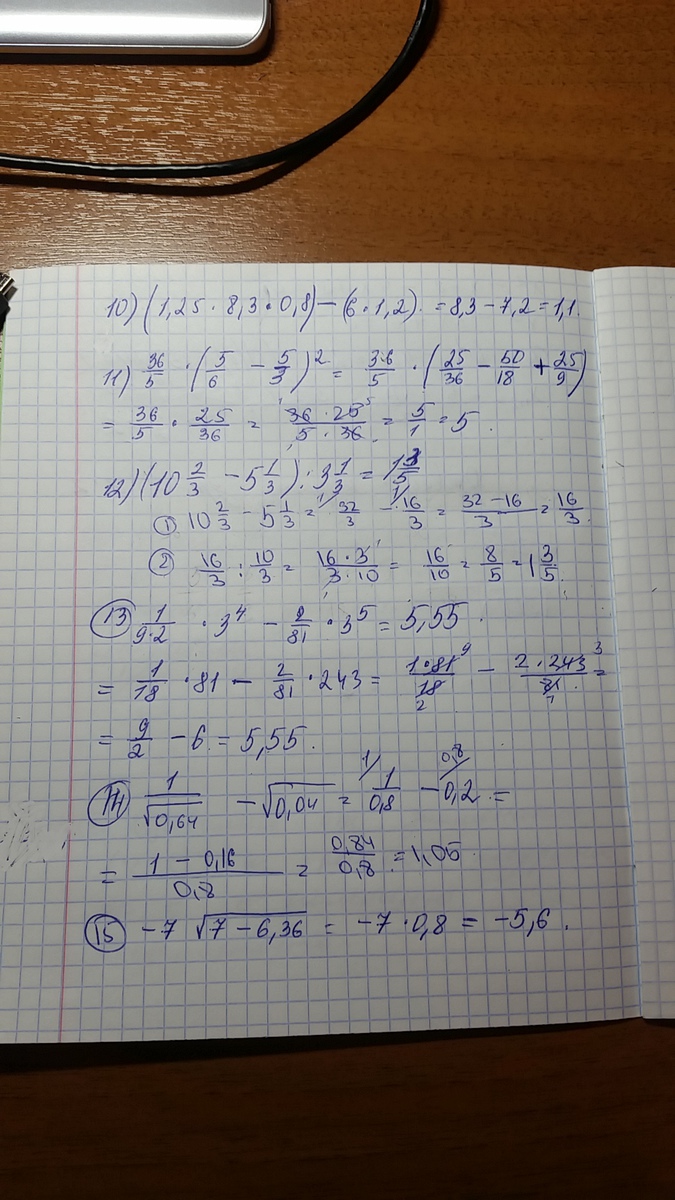 10) (1,25 · 8,3 · 0,8) − (6 · 1,2). = 8,3 − 7,2 = 1,1.
11) 36/5 · (5/6 − 5/3)² = 36/5 · (25/36 − 50/18 + 25/9)
= 36/5 · 25/36 = 36 · 25/5 · 36 = 5/1 = 5.
12) (10 2/3 − 5 1/3) : 3 1/3 = 1 3/5
① 10 2/3 − 5 1/3 = 32/3 − 16/3 = 32 − 16/3 = 16/3.
② 16/3 : 10/3 = 16 · 3/3 · 10 = 16/10 = 8/5 = 1 3/5.
⑬ 1/9·2 · 3⁴ − 2/81 · 3⁵ = 5,55.
= 1/18 · 81 − 2/81 · 243 = 1 · 81 9/18 2 − 2 · 243 3/81 1 =
= 9/2 − 6 = 5,55.
⑭ 1/√0,64 − √0,04 = 1/ 1/0,8 − 0,8/ 0,2 =
= 1 − 0,16/0,8 = 0,84/0,8 = 1,05.
⑮ −7 √7 − 6,36 = −7 · 0,8 = −5,6.